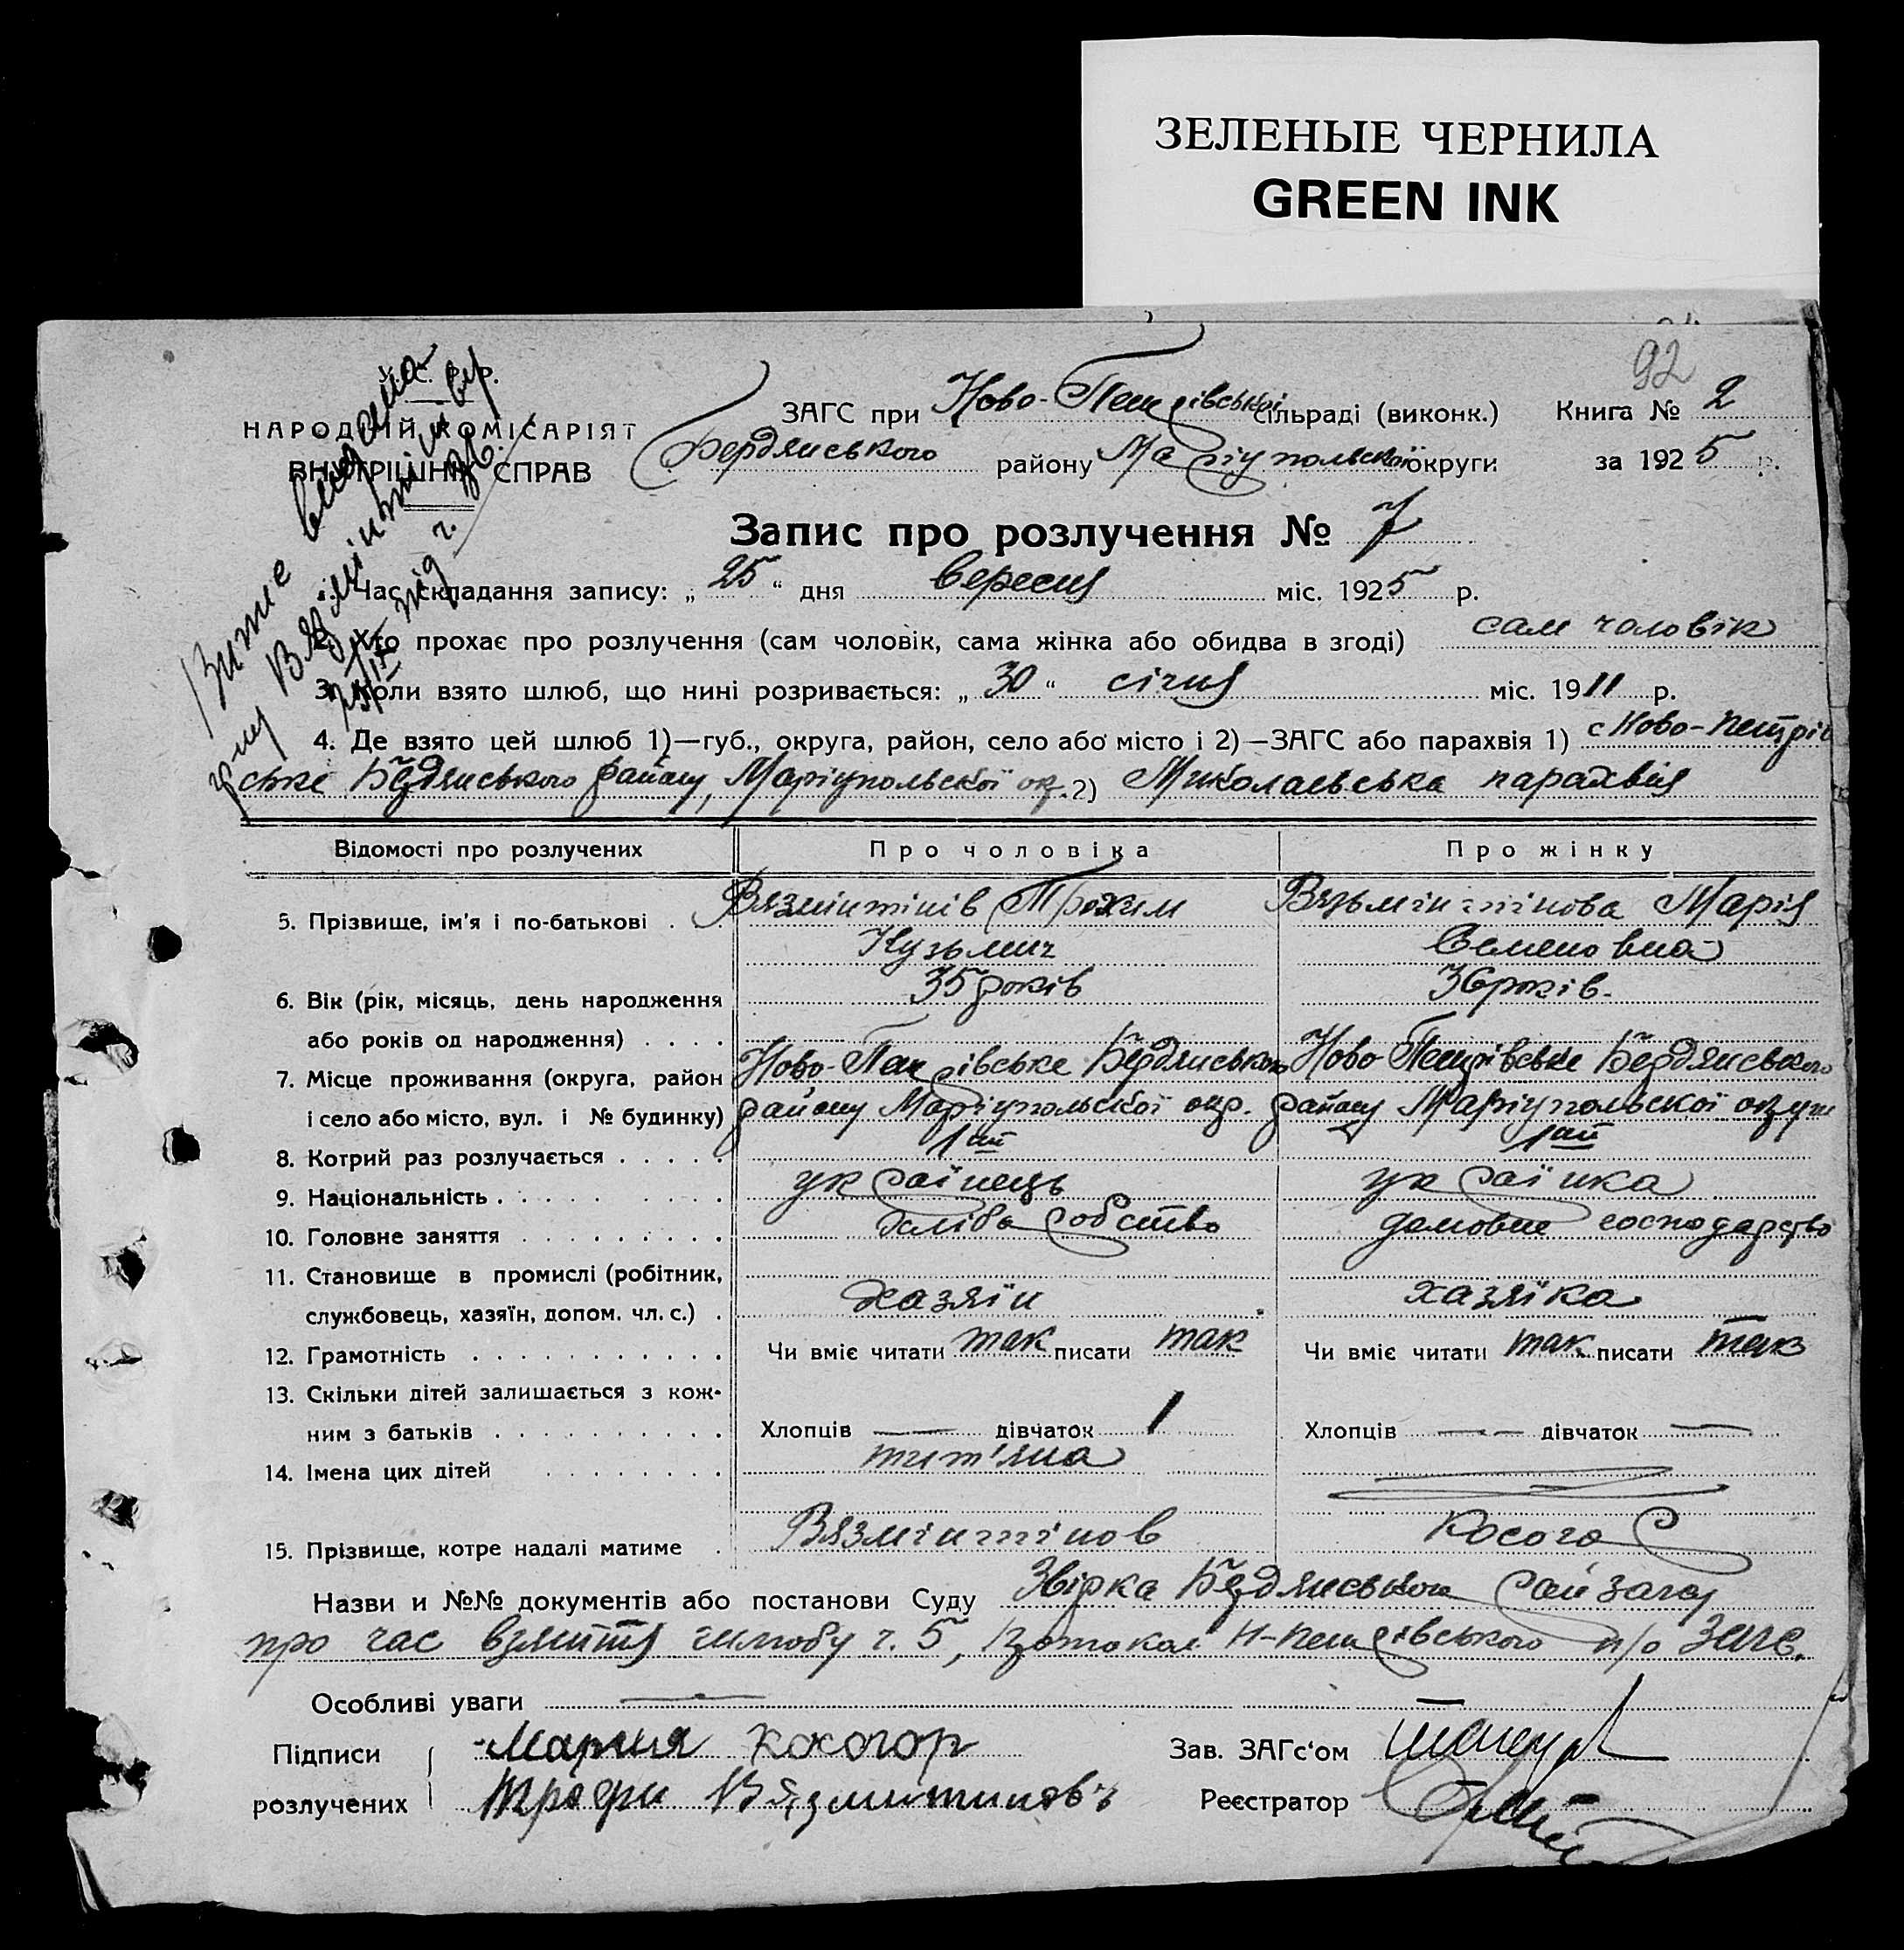 ЗЕЛЕНЫЕ ЧЕРНИЛА
GREEN INK
92
У.С.Р.Р.
НАРОДНІЙ КОМІСАРІЯТ
ВНУТРІШНІХ СПРАВ
ЗАГС при Ново-Петрівській сільраді (виконк.) Книга № 2
Бердянського району Маріупольської округи за 1925 р.
Запис про розлучення № 7
1. Час складання запису: „25“ дня вересня міс. 1925 р.
2. Хто прохає про розлучення (сам чоловік, сама жінка або обидва в згоді) сам чоловік
3. Коли взято шлюб, що нині розривається: „30“ січня міс. 1911 р.
4. Де взято цей шлюб 1)—губ., округа, район, село або місто і 2)—ЗАГС або парахвія 1) с Ново-Петрів
ське Бердянського району, Маріупольської ок. 2) Миколаевська парахвія
Відомості про розлучених Про чоловіка Про жінку
5. Прізвище, ім'я і по-батькові Вязмінтінів Трохим Вязьмінтінова Марія
Кузьмич Семеновна
6. Вік (рік, місяць, день народження 35 років 36 років.
або років од народження)
7. Місце проживання (округа, район Ново-Петрівське Бердянського Ново Петрівське Бердянського
і село або місто, вул. і № будинку) району Маріупольської окр. району Маріупольської окруи
8. Котрий раз розлучається 1ий 1ий
9. Національність українець українка
10. Головне заняття хліборобство домовне господарство
11. Становище в промислі (робітник,
службовець, хазяїн, допом. чл. с.) хазяїн хазяїка
12. Грамотність Чи вміє читати так писати так Чи вміє читати так писати так
13. Скільки дітей залишається з кож-
ним з батьків Хлопців — дівчаток 1 Хлопців — дівчаток —
14. Імена цих дітей тит'яна
15. Прізвище, котре надалі матиме Вязмінтінов Косогор
Назви и №№ документів або постанови Суду Звірка Бердянського райзагсу
про час взяття шлюбу ч. 5, Н-Петрівського п/о Загс.
Особливі уваги —
Підписи Мария Косогор Зав. ЗАГс'ом
розлучених Трофи Вязминтиновъ Реєстратор